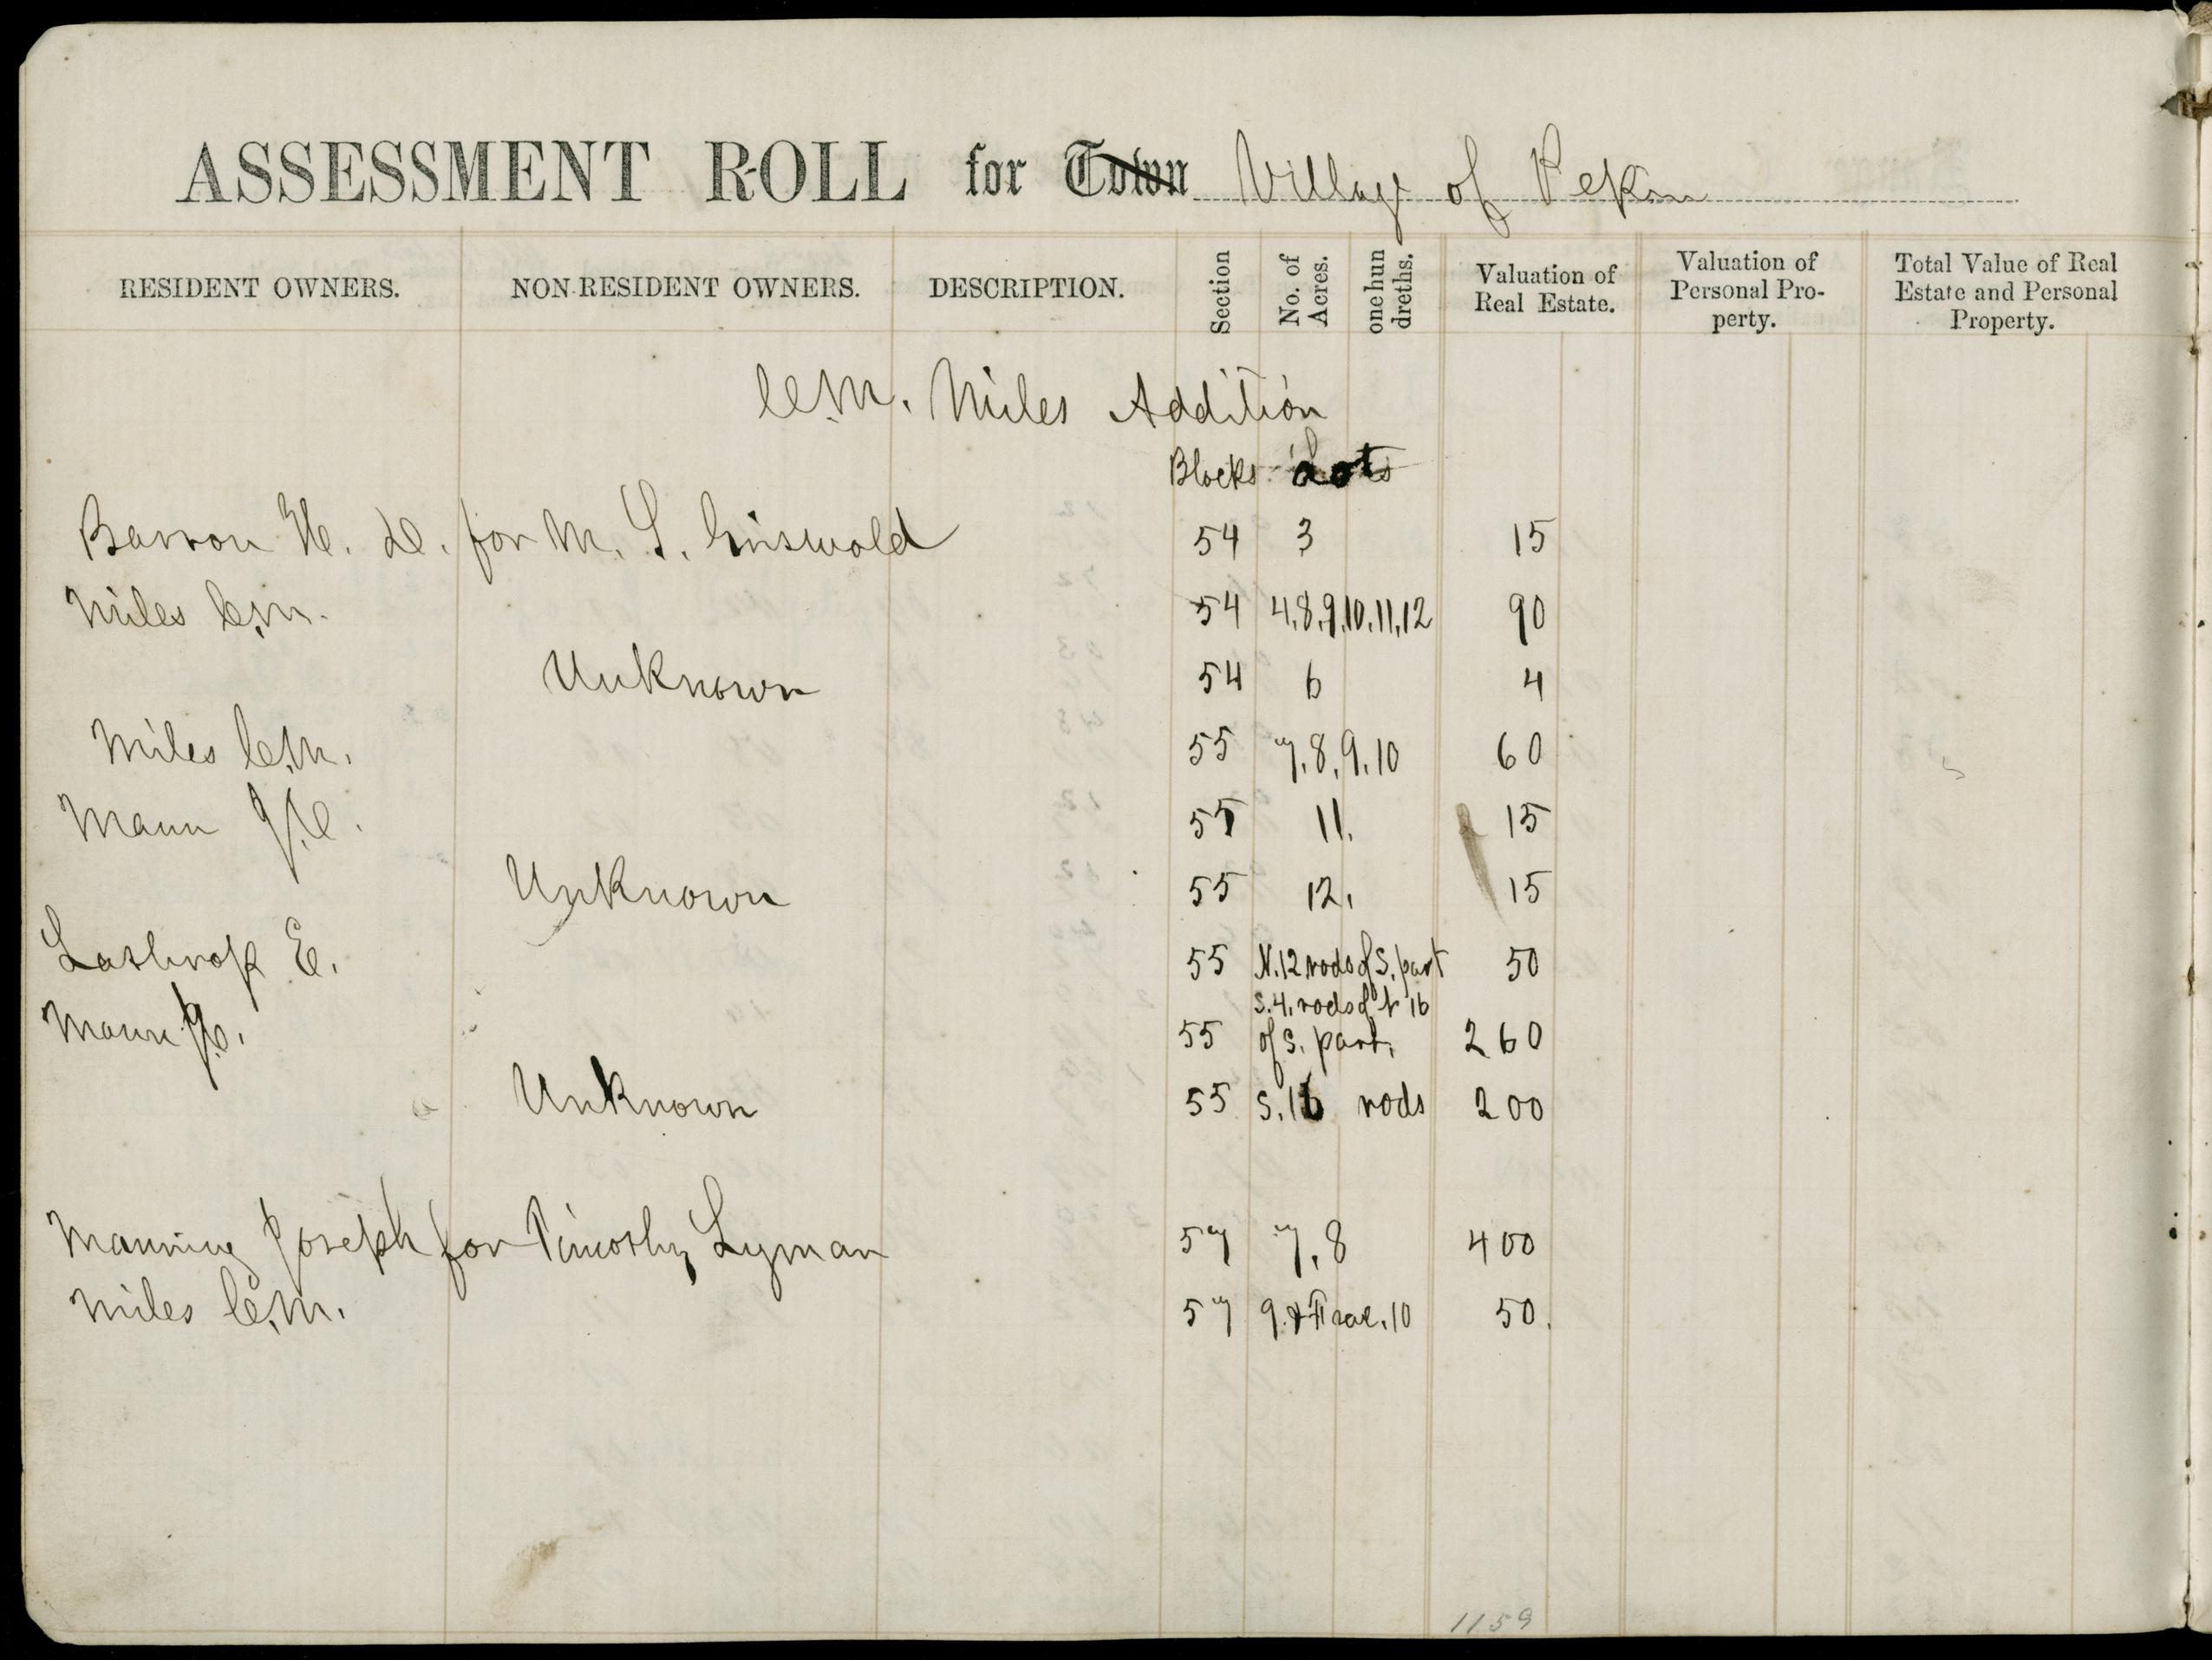 ASSESSMENT ROLL for Town Village of Pekin
RESIDENT OWNERS. NON-RESIDENT OWNERS. DESCRIPTION. Section No. of Acres. one hun dreths. Valuation of Real Estate. Valuation of Personal Pro- perty. Total Value of Real Estate and Personal Property.
C.M. Miles Addition
Blocks Lots
Barron H. D. for M. S. Griswold 54 3 15
Miles C.M. 54 4,8,9,10,11,12 90
Unknown 54 6 4
Miles C.M. 55 7,8,9,10 60
Mann J.C. 55 11. 15
Unknown 55 12. 15
Lathrop E. 55 N.12 rods of S. part 50
S.4. rods of N 16
Mann J.C. 55 of S. part. 260
Unknown 55 S.16 rods 200
Manning Joseph for Timothy Lyman 57 7,8 400
Miles C.M. 57 9.& Frac.10 50.
1159